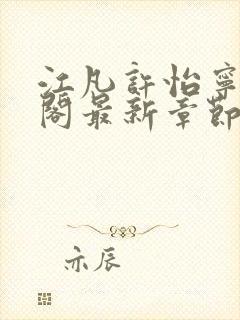 江凡許怡寧
閣最新章節
亦辰